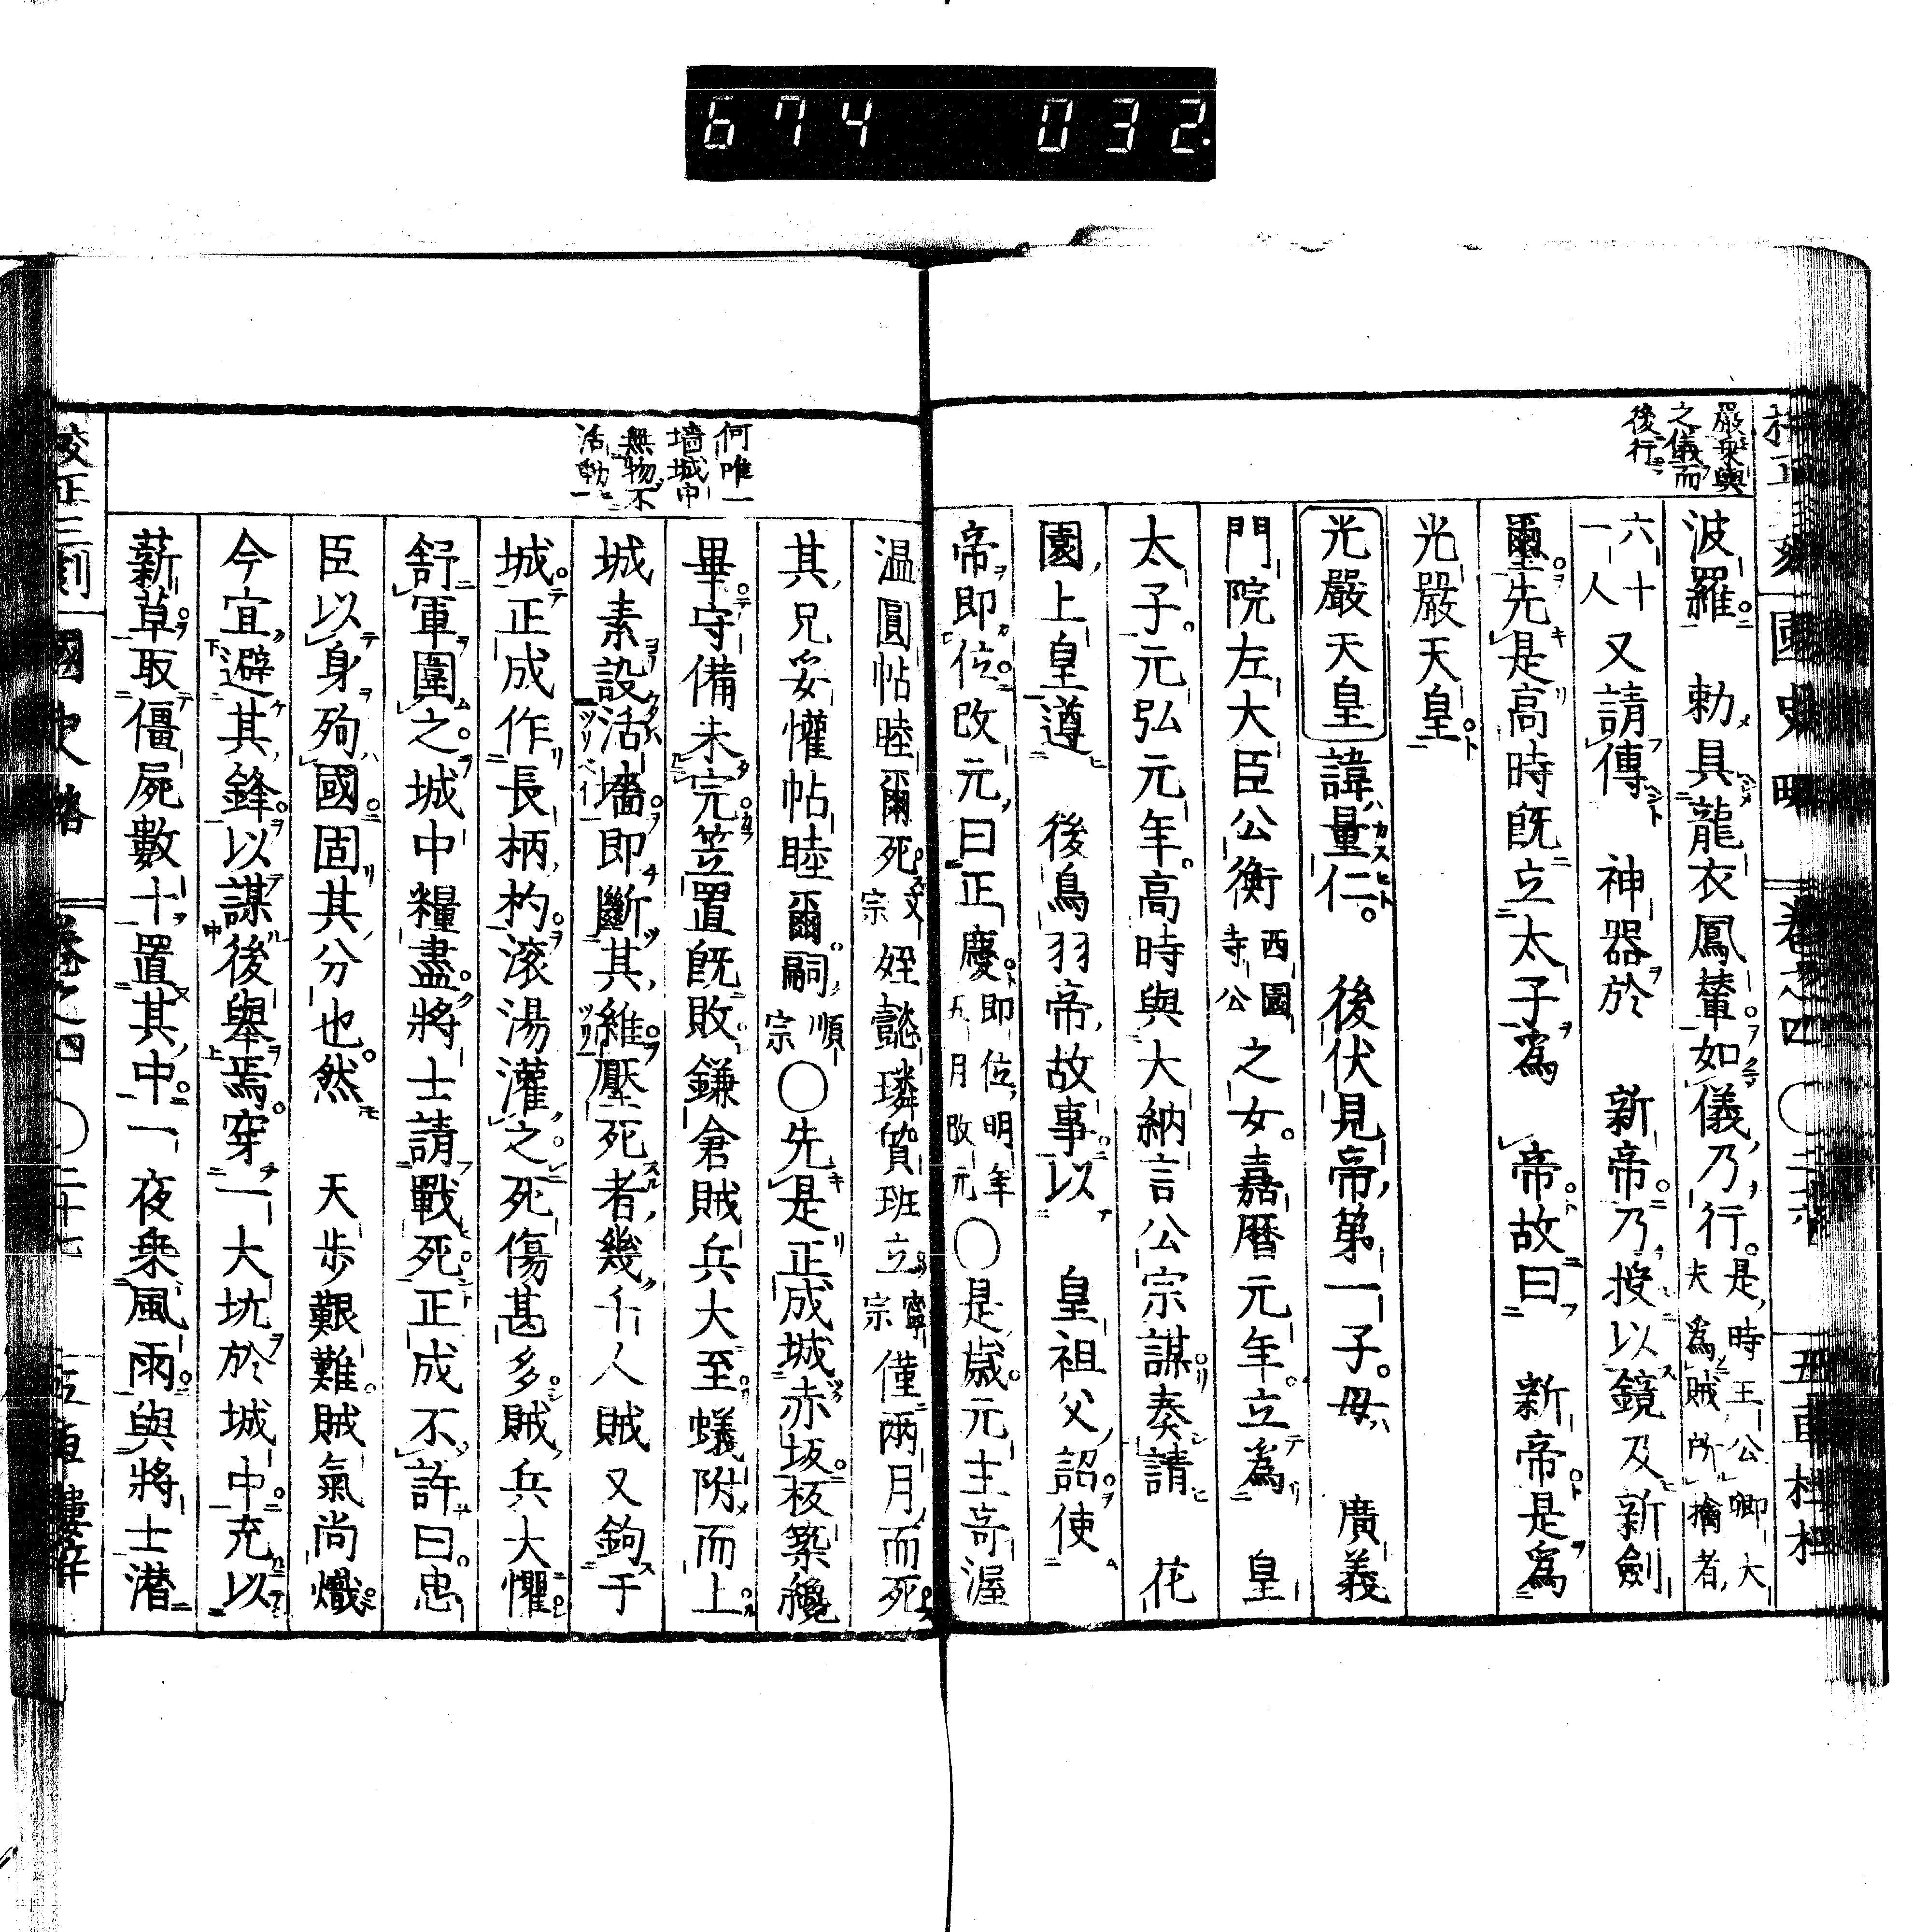 674 032.
嚴乘輿
之儀而
後行
波羅 勅具龍衣鳳輦如儀乃行是時王公卿大夫爲賊所擒者
六十一人又請傳 神器於 新帝乃授以鏡及新劍
璽先是高時既立太子爲 帝故曰 新帝是爲
光嚴天皇
光嚴天皇諱量仁 後伏見帝第一子母 廣義
門院左大臣公衡西園寺公之女嘉曆元年立爲 皇
太子元弘元年高時與大納言公宗謀奏請 花
園上皇遵 後鳥羽帝故事以 皇祖父詔使
帝即位改元曰正慶即位明年五月改元〇是歲元主奇渥
何唯一
墻城中
無物不
活動
温圓帖睦爾死文宗姪懿璘質班立寧宗僅兩月而死
其兄妥懽帖睦爾嗣順宗〇先是正成城赤坂板築纔
畢守備未完笠置既敗鎌倉賊兵大至蟻附而上
城素設活墻即斷其維壓死者幾千人賊又鉤于
城正成作長柄杓滚湯灌之死傷甚多賊兵大懼
舒軍圍之城中糧盡將士請戰死正成不許曰忠
臣以身殉國固其分也然 天步艱難賊氣尚熾
今宜避其鋒以謀後舉焉穿一大坑於城中充以
薪草取僵屍數十置其中一夜乘風雨與將士潛
校正三刻 國史略 卷之四 〇二十七 五車樓梓